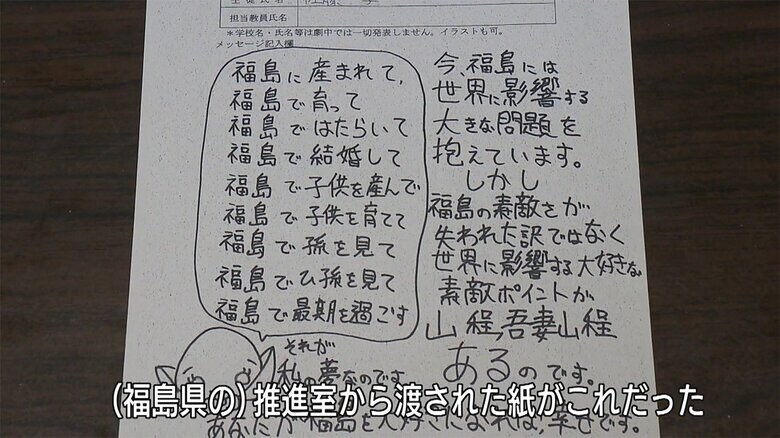 担当教員氏名
＊学校名・氏名等は劇中では一切発表しません。イラストも可。
メッセージ記入欄
福島に産まれて、
福島で育って
福島ではたらいて
福島で結婚して
福島で子供を産んで
福島で子供を育てて
福島で孫を見て
福島でひ孫を見て
福島で最期を過ごす
それが
私の夢なのです
今、福島には
世界に影響する
大きな問題を
抱えています。
しかし
福島の素敵さが
失われた訳ではなく
世界に影響する大好きな
素敵ポイントが
山程、吾妻山程
あるのです。
あなたが福島を大好きになれば、幸せです。
(福島県の)推進室から渡された紙がこれだった